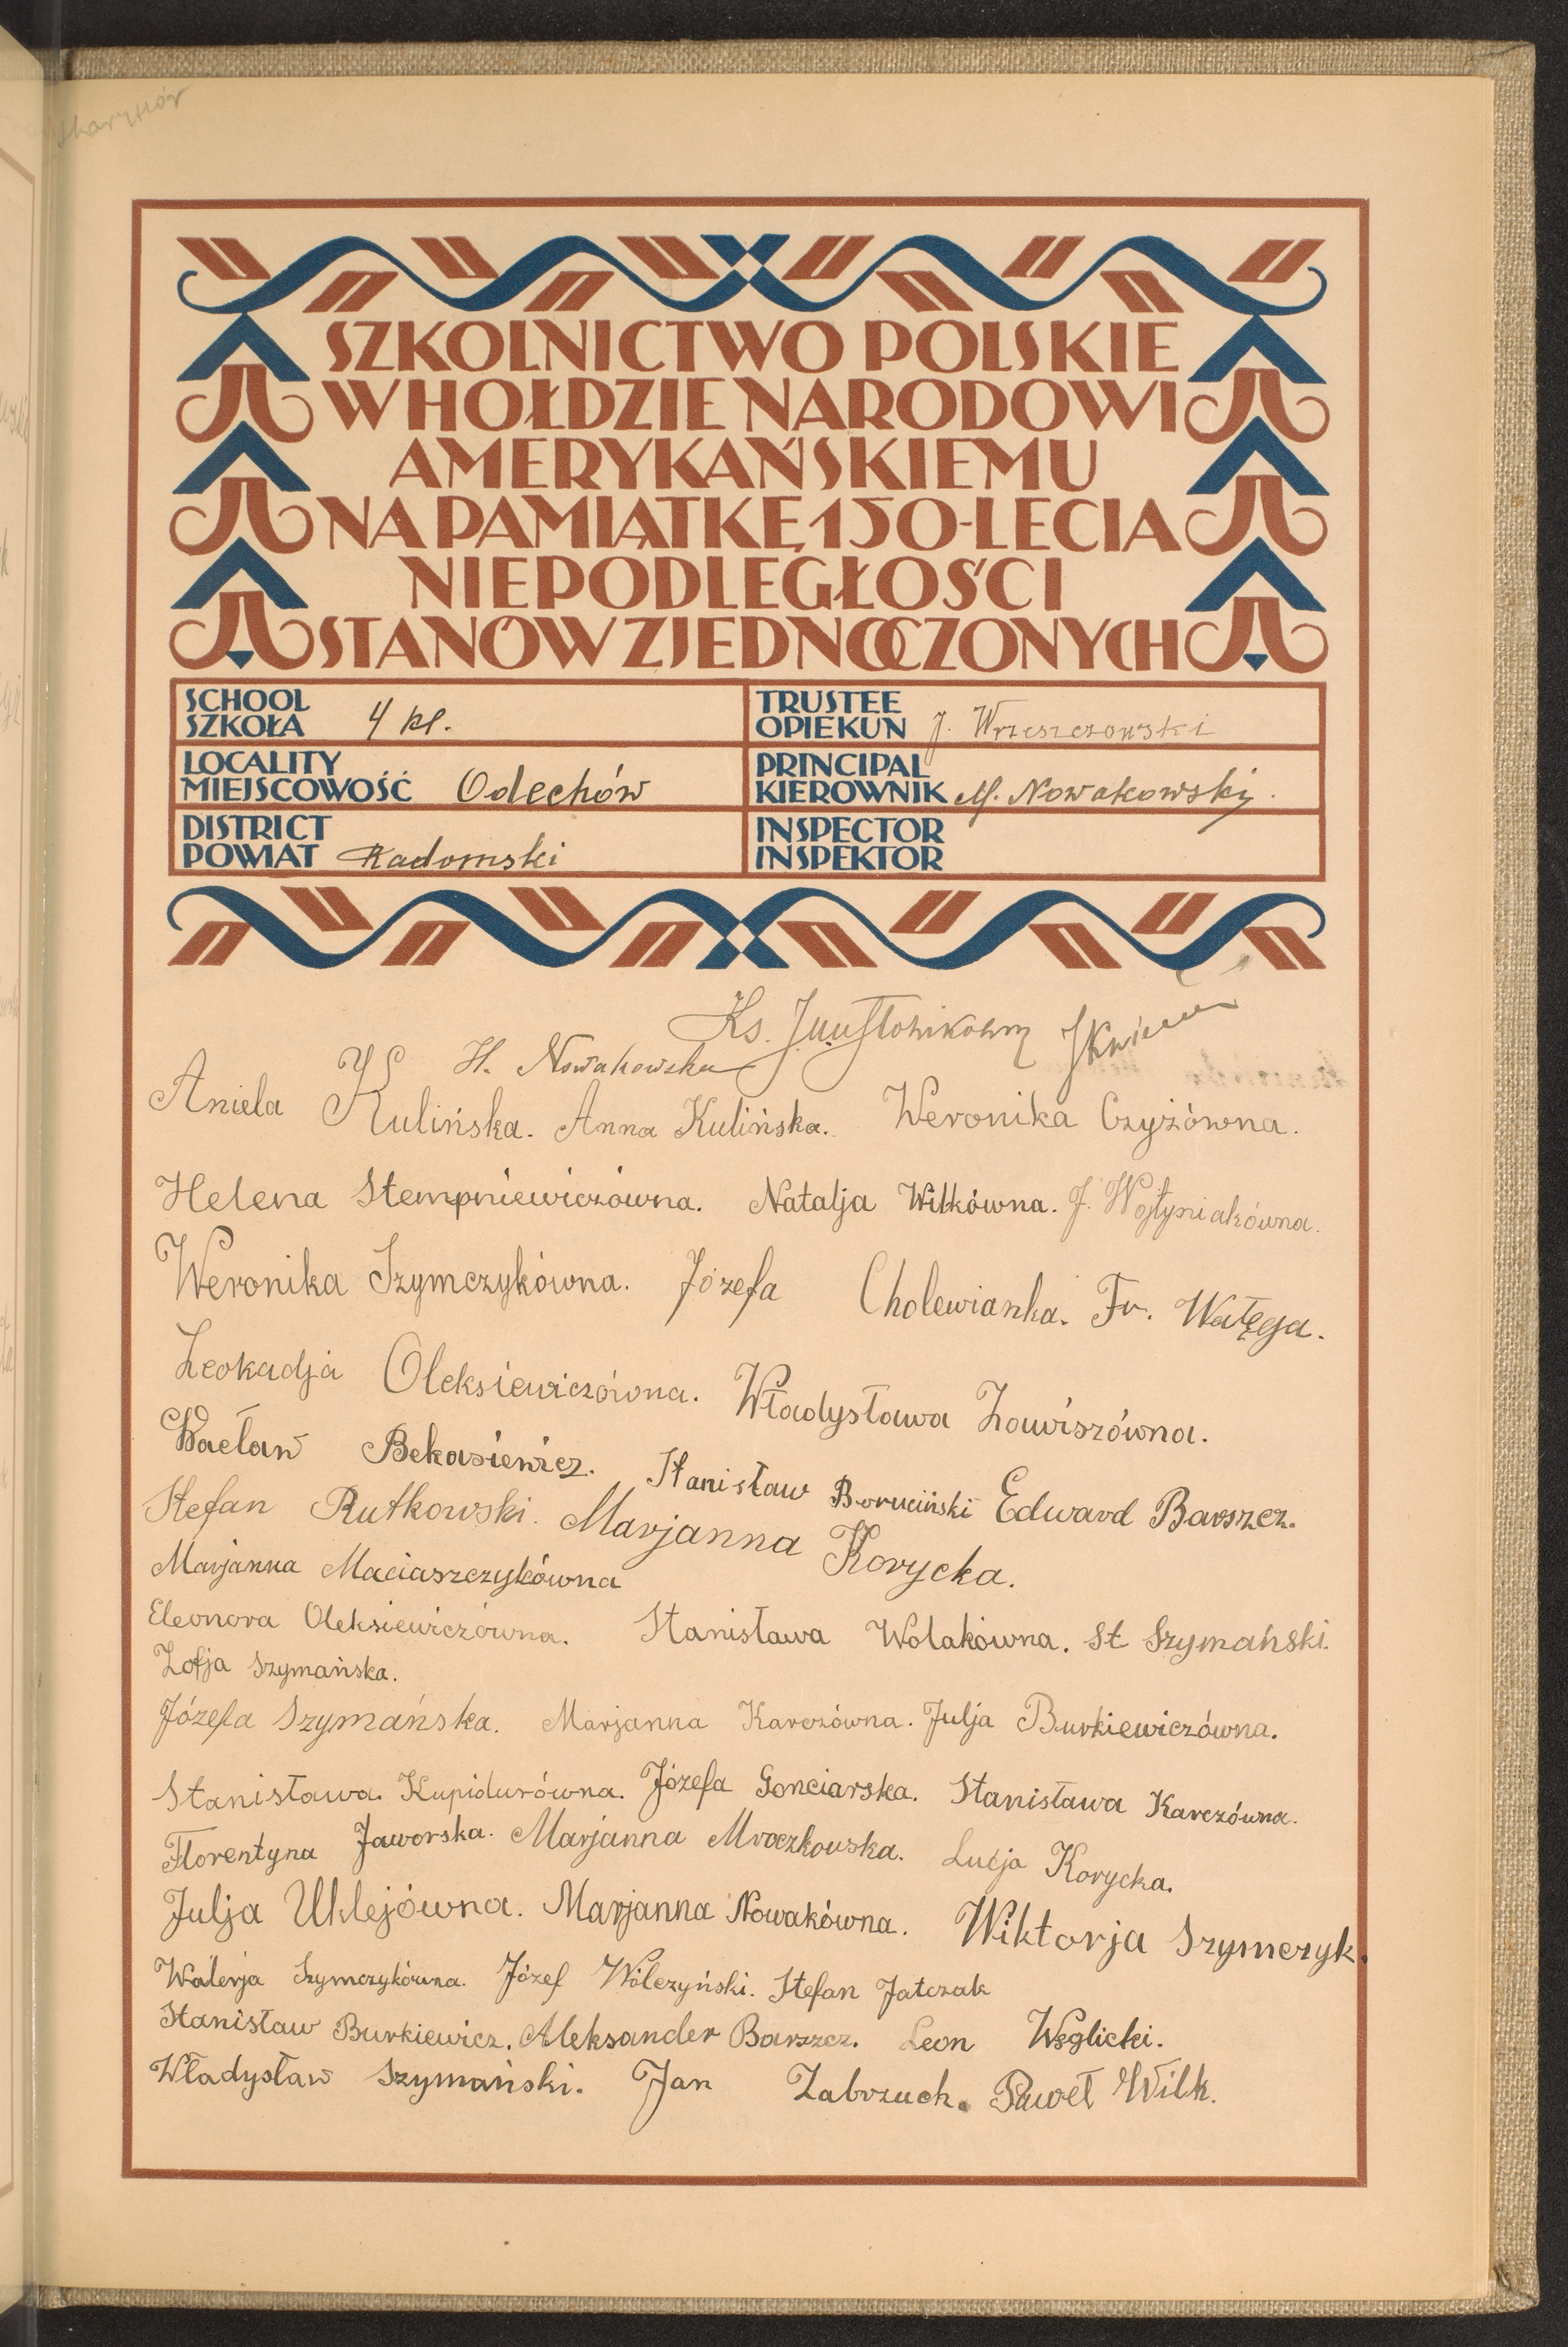 SZKOLNICTWO POLSKIE
W HOŁDZIE NARODOWI
AMERYKAŃSKIEMU
NA PAMIĄTKĘ 150-LECIA
NIEPODLEGŁOŚCI
STANÓW ZJEDNOCZONYCH
SCHOOL
SZKOŁA 4 kl.
TRUSTEE
OPIEKUN J. Wrzeszczowski
LOCALITY
MIEJSCOWOŚĆ Odechów
PRINCIPAL
KIEROWNIK M. Nowakowski.
DISTRICT
POWIAT Radomski
INSPECTOR
INSPEKTOR
Ks.
H. Nowakowska
Aniela Kulińska. Anna Kulińska. Weronika Czyżówna.
Helena Stempniewiczówna. Natalja Wilkówna. J. Wojtyniakówna.
Weronika Szymczykówna. Józefa Cholewianka. Fr. Wałęga.
Leokadja Oleksiewiczówna. Władysława Zawiszówna.
Wacław Bekasiewicz. Stanisław Boruciński Edward Barszcz.
Stefan Rutkowski. Marjanna Korycka.
Marjanna Maciaszczykówna
Eleonora Oleksiewiczówna. Stanisława Wolakówna. St Szymański.
Zofja Szymańska.
Józefa Szymańska. Marjanna Karczówna. Julja Burkiewiczówna.
Stanisława Kupidurówna. Józefa Gonciarska. Stanisława Karczówna.
Florentyna Jaworska. Marjanna Mroczkowska. Lucja Korycka.
Julja Uklejówna. Marjanna Nowakówna. Wiktorja Szymczyk.
Walerja Szymczykówna. Józef Wólczyński. Stefan Jatczak
Stanisław Burkiewicz. Aleksander Barszcz. Leon Węglicki.
Władysław Szymański. Jan Zabrzuch. Paweł Wilk.